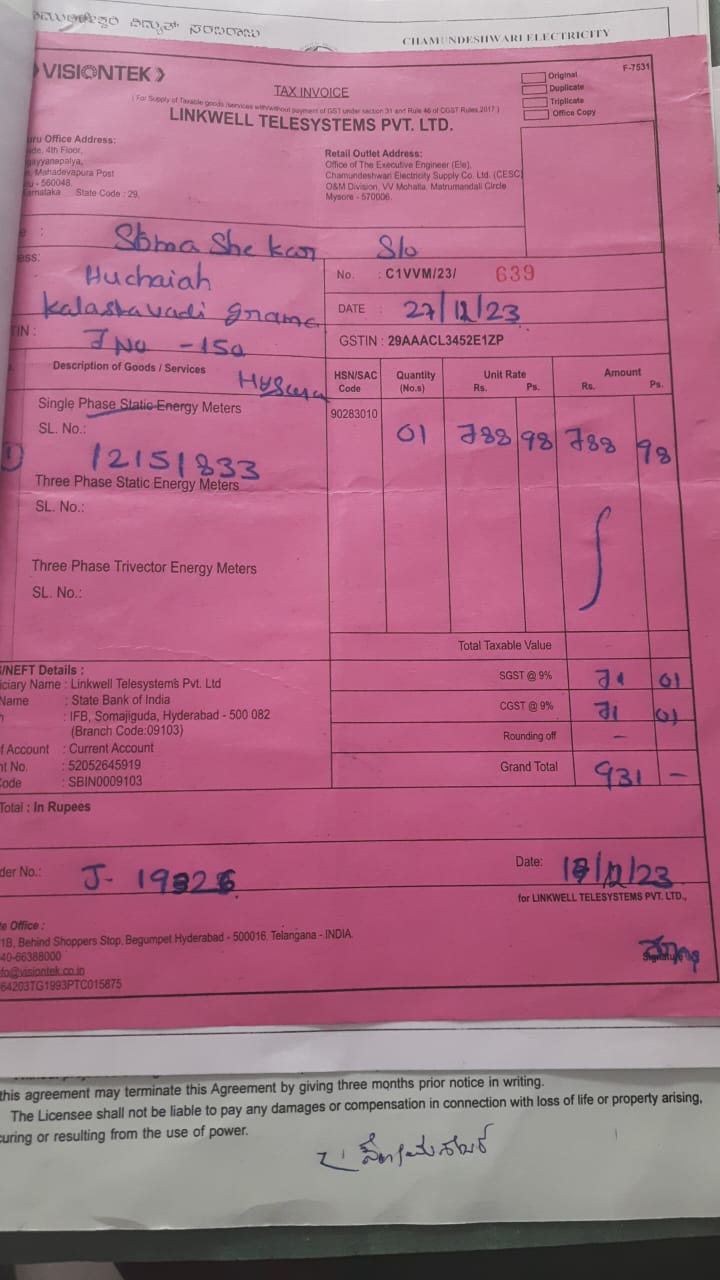 CHAMUNDESHWARI ELECTRICITY
VISIONTEK
TAX INVOICE
F-7531
Original
Duplicate
Triplicate
Office Copy
(For Supply of Taxable goods /services with/without payment of GST under section 31 and Rule 46 of CGST Rules,2017)
LINKWELL TELESYSTEMS PVT. LTD.
uru Office Address:
de, 4th Floor,
gayyanapalya,
, Mahadevapura Post
u - 560048.
arnataka State Code : 29.
Retail Outlet Address:
Office of The Executive Engineer (Ele),
Chamundeshwari Electricity Supply Co. Ltd. (CESC)
O&M Division, VV Mohalla, Matrumandali Circle
Mysore - 570006.
e : Soma She kar S/o
ess: Huchaiah
No. : C1VVM/23/ 639
Kalastavadi grama
DATE : 27/12/23
TIN : J No - 150
GSTIN : 29AAACL3452E1ZP
Description of Goods / Services
HSN/SAC Code
Quantity (No.s)
Unit Rate Rs. Ps.
Amount Rs. Ps.
Single Phase Static Energy Meters
90283010
01 788 98 788 98
SL. No.:
1) 12151833
Three Phase Static Energy Meters
SL. No.:
Three Phase Trivector Energy Meters
SL. No.:
Total Taxable Value
/NEFT Details :
ciary Name : Linkwell Telesystems Pvt. Ltd
Name : State Bank of India
h : IFB, Somajiguda, Hyderabad - 500 082
(Branch Code:09103)
f Account : Current Account
nt No. : 52052645919
Code : SBIN0009103
SGST @ 9% 71 01
CGST @ 9% 71 01
Rounding off -
Grand Total 931 -
Total : In Rupees
der No.: J- 19326
Date: 18/12/23
for LINKWELL TELESYSTEMS PVT. LTD.,
e Office :
1B, Behind Shoppers Stop, Begumpet Hyderabad - 500016, Telangana - INDIA.
40-66388000
fo@visiontek.co.in
64203TG1993PTC015875
Signature
this agreement may terminate this Agreement by giving three months prior notice in writing.
The Licensee shall not be liable to pay any damages or compensation in connection with loss of life or property arising,
curing or resulting from the use of power.